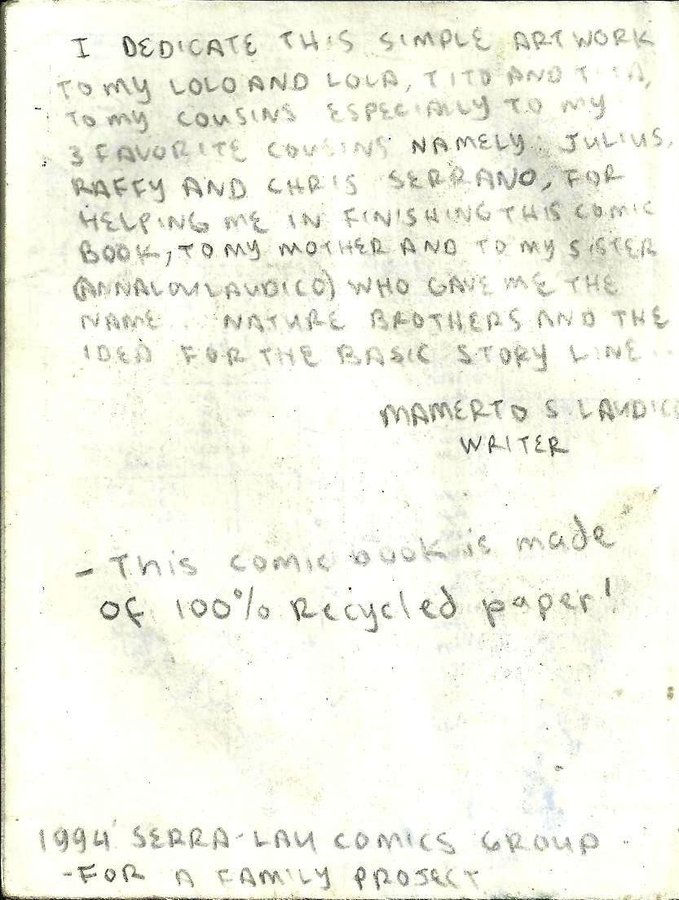 I DEDICATE THIS SIMPLE ARTWORK
TO MY LOLO AND LOLA, TITO AND TITA,
TO MY COUSINS ESPECIALLY TO MY
3 FAVORITE COUSINS NAMELY: JULIUS,
RAFFY AND CHRIS SERRANO, FOR
HELPING ME IN FINISHING THIS COMIC
BOOK, TO MY MOTHER AND TO MY SISTER
(ANNALOU LAUDICO) WHO GAVE ME THE
NAME.. NATURE BROTHERS AND THE
IDEA FOR THE BASIC STORY LINE..
MAMERTO S LAUDICO
WRITER
- This comic book is made
of 100% Recycled paper!
1994 SERRA-LAU COMICS GROUP
-FOR A FAMILY PROJECT